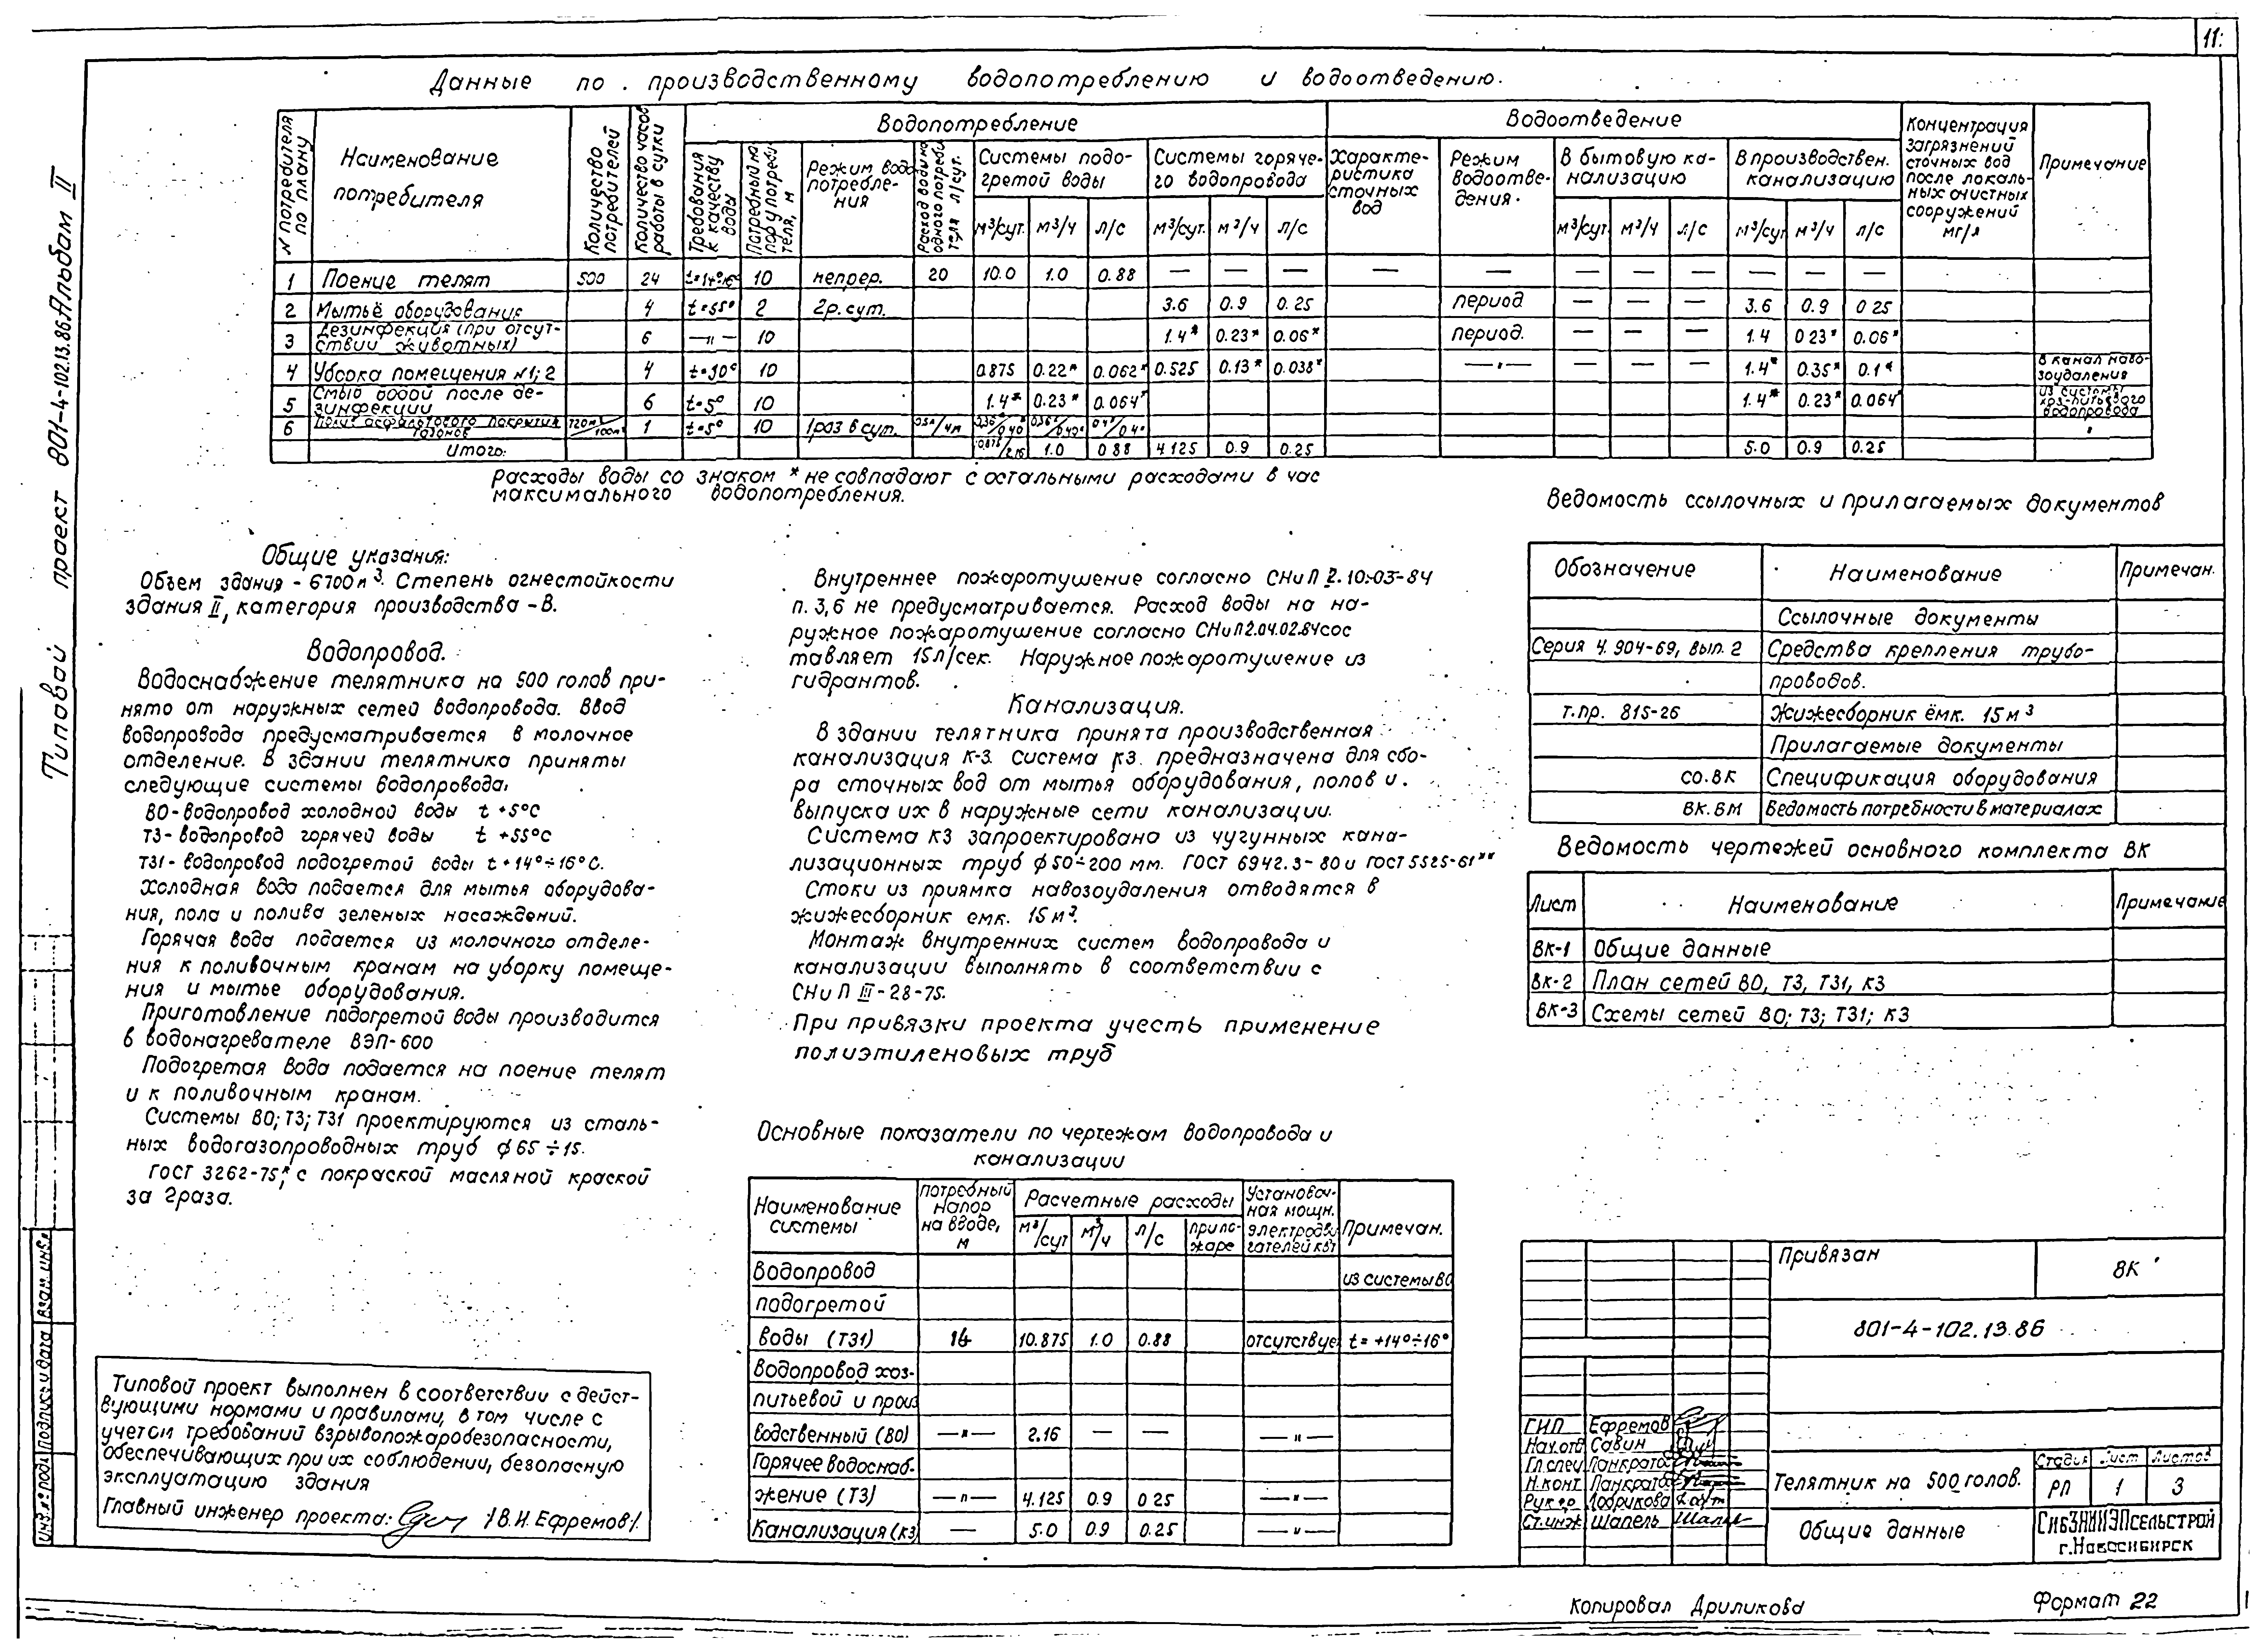 11
Типовой проект 801-4-102.13.86 Альбом II
Данные по производственному водопотреблению и водоотведению.
№ потребителя по плану
Наименование потребителя
Количество потребителей
Количество часов работы в сутки
Водопотребление
Требования к качеству воды
Потребный напор у потребителя, м
Режим водопотребления
Расход воды на одного потребителя л/сут.
Системы подогретой воды
Системы горячего водопровода
Водоотведение
Характеристика сточных вод
Режим водоотведения.
В бытовую канализацию
В производствен. канализацию
Концентрация загрязнений сточных вод после локальных очистных сооружений мг/л
Примечание
м³/сут. м³/ч л/с м³/сут. м³/ч л/с м³/сут м³/ч л/с м³/сут м³/ч л/с
1 Поение телят 500 24 t=14°÷16° 10 непрер. 20 10.0 1.0 0.88 — — — — — — — — — — —
2 Мытьё оборудование 4 t=55° 2 2р. сут. 3.6 0.9 0.25 период — — — 3.6 0.9 0 25
3 Дезинфекция (при отсутствии животных) 6 —"— 10 1.4* 0.23* 0.06* период. — — — 1.4 0 23* 0.06*
4 Уборка помещения №1; 2 4 t=30° 10 0.875 0.22* 0.062* 0.525 0.13* 0.038* —"— — — — 1.4* 0.35* 0.1* В канал навозоудаления
5 Смыв водой после дезинфекции 6 t=5° 10 1.4* 0.23* 0.064* 1.4* 0.23* 0.064* из системы хоз-питьевого водопровода
6 Полив асфальтового покрытия газонов 1 t=5° 10 1раз в сут. "
Итого: 1.0 0 88 4 125 0.9 0.25 5.0 0.9 0.25
Расходы воды со знаком * не совпадают с остальными расходами в час
максимального водопотребления.
Общие указания:
Объем здания - 6700м³. Степень огнестойкости
здания II, категория производства - В.
Водопровод.
Водоснабжение телятника на 500 голов при-
нято от наружных сетей водопровода. Ввод
водопровода предусматривается в молочное
отделение. В здании телятника приняты
следующие системы водопровода:
ВО-водопровод холодной воды t +5°С
Т3-водопровод горячей воды t +55°С
Т31-водопровод подогретой воды t +14°÷16°С.
Холодная вода подается для мытья оборудова-
ния, пола и полива зеленых насаждений.
Горячая вода подается из молочного отделе-
ния к поливочным кранам на уборку помеще-
ния и мытье оборудования.
Приготовление подогретой воды производится
в водонагревателе ВЭП-600
Подогретая вода подается на поение телят
и к поливочным кранам.
Системы ВО; Т3; Т31 проектируются из сталь-
ных водогазопроводных труб ф 65÷15.
ГОСТ 3262-75*, с покраской масляной краской
за 2раза.
Типовой проект выполнен в соответствии с дейст-
вующими нормами и правилами, в том числе с
учетом требований взрывопожаробезопасности,
обеспечивающих при их соблюдении, безопасную
эксплуатацию здания
Главный инженер проекта: /В.И. Ефремов/.
Внутреннее пожаротушение согласно СНиП 2.10.03-84
п. 3,6 не предусматривается. Расход воды на на-
ружное пожаротушение согласно СНиП2.04.02.84 сос
тавляет 15л/сек. Наружное пожаротушение из
гидрантов.
Канализация.
В здании телятника принята производственная
канализация К-3. Система К3. предназначена для сбо-
ра сточных вод от мытья оборудования, полов и
выпуска их в наружные сети канализации.
Система К3 запроектирована из чугунных кана-
лизационных труб ф 50÷200 мм. ГОСТ 6942.3-80 и ГОСТ 5525-61**
Стоки из приямка навозоудаления отводятся в
жижесборник емк. 15м³.
Монтаж внутренних систем водопровода и
канализации выполнять в соответствии с
СНиП III-28-75.
При привязки проекта учесть применение
полиэтиленовых труб
Основные показатели по чертежам водопровода и
канализации
Наименование системы
Потребный напор на вводе, м
Расчетные расходы
м³/сут м³/ч л/с при пожаре
Установочная мощн. электродвигателей кВт
Примечан.
Водопровод из системы ВО
подогретой
воды (Т31) 14 10.875 1.0 0.88 отсутствуе t= +14°÷16°
Водопровод хоз-
питьевой и произ
водственный (ВО) —"— 2.16 — — —"—
Горячее водоснаб-
жение (Т3) —"— 4.125 0.9 0 25 —"—
Канализация (К3 — 5.0 0.9 0.25 —"—
Ведомость ссылочных и прилагаемых документов
Обозначение Наименование Примечан.
Ссылочные документы
Серия 4.904-69, вып. 2 Средства крепления трубо-
проводов.
т.пр. 815-26 Жижесборник ёмк. 15м³
Прилагаемые документы
СО.ВК Спецификация оборудования
ВК.ВМ Ведомость потребности в материалах
Ведомость чертежей основного комплекта ВК
Лист Наименование Примечание
ВК-1 Общие данные
ВК-2 План сетей ВО, Т3, Т31, К3
ВК-3 Схемы сетей ВО; Т3; Т31; К3
Привязан
ВК
801-4-102.13.86
ГИП Ефремов
Нач.отд Савин
Гл.спец Панкрата
Н.конт Панкрата
Рук.гр
Ст.инж Шапель
Телятник на 500 голов.
Стадия Лист Листов
РП 1 3
Общие данные
СибЗНИИЭПсельстрой
г.Новосибирск
Инв.№ подл Подпись и дата Взам. инв.№
Копировал Дриликова
Формат 22